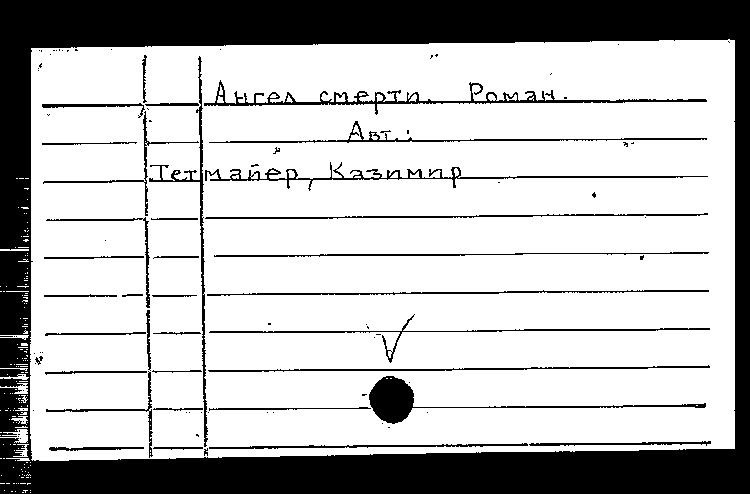 Ангел смерти. Роман.
Авт.:
Тетмайер, Казимир